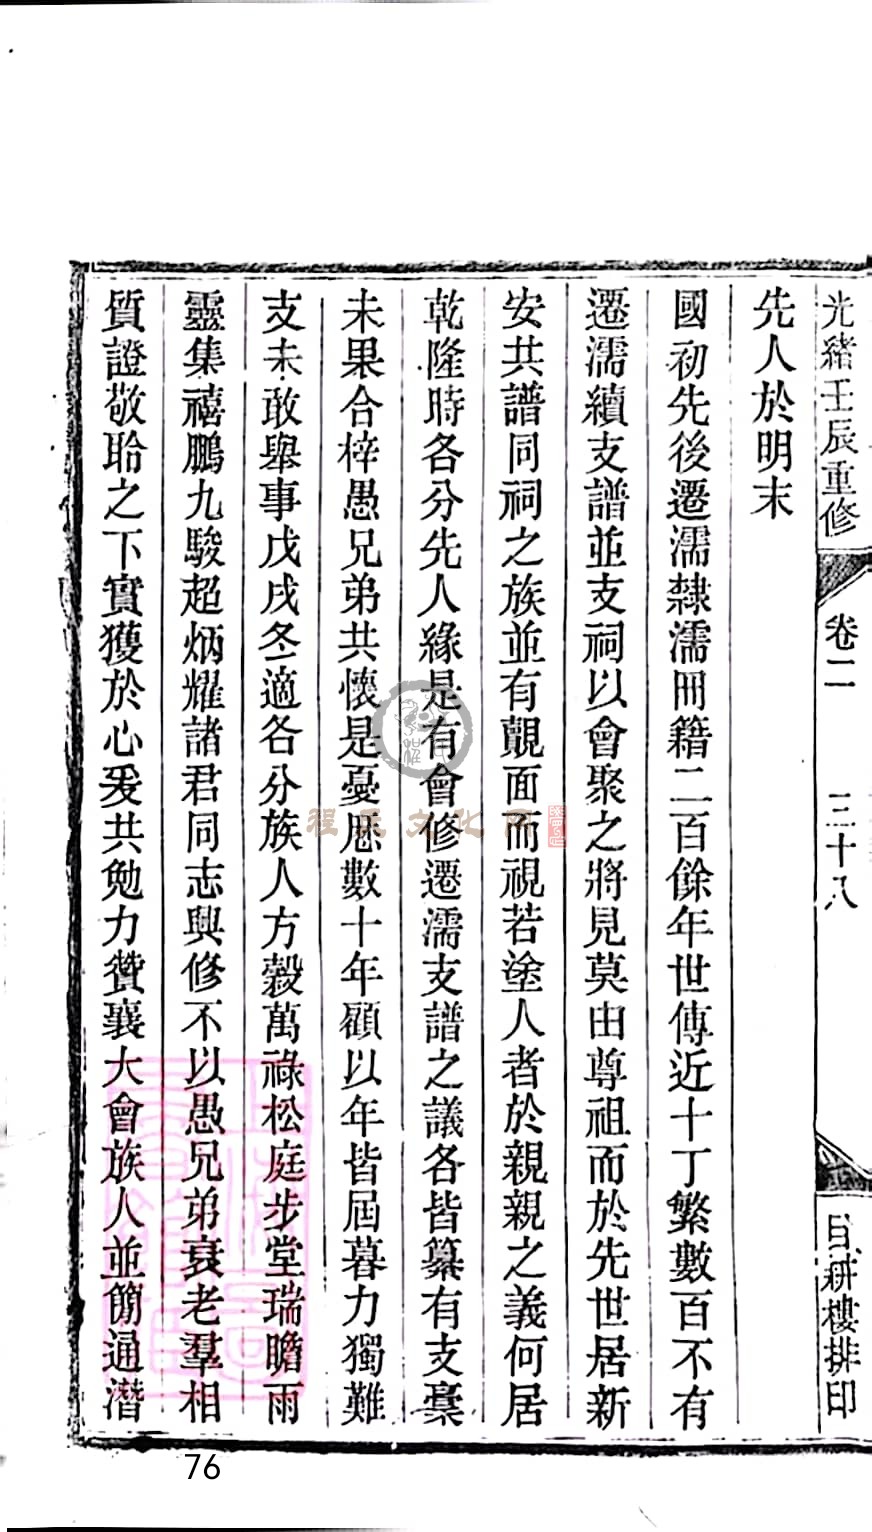 光緒壬辰重修
卷二
三十八
日耕樓排印
先人於明末
國初先後遷濡隸濡冊籍二百餘年世傳近十丁繁數百不有
遷濡續支譜並支祠以會聚之將見莫由尊祖而於先世居新
安共譜同祠之族並有覿面而視若塗人者於親親之義何居
乾隆時各分先人緣是有會修遷濡支譜之議各皆纂有支稾
未果合梓愚兄弟共懷是憂歷數十年顧以年皆屆暮力獨難
支未敢舉事戊戌冬適各分族人方穀萬祿松庭步堂瑞瞻雨
靈集禧鵬九駿超炳耀諸君同志興修不以愚兄弟衰老羣相
質證敬聆之下實獲於心爰共勉力贊襄大會族人並簡通潛
程氏文化网
76